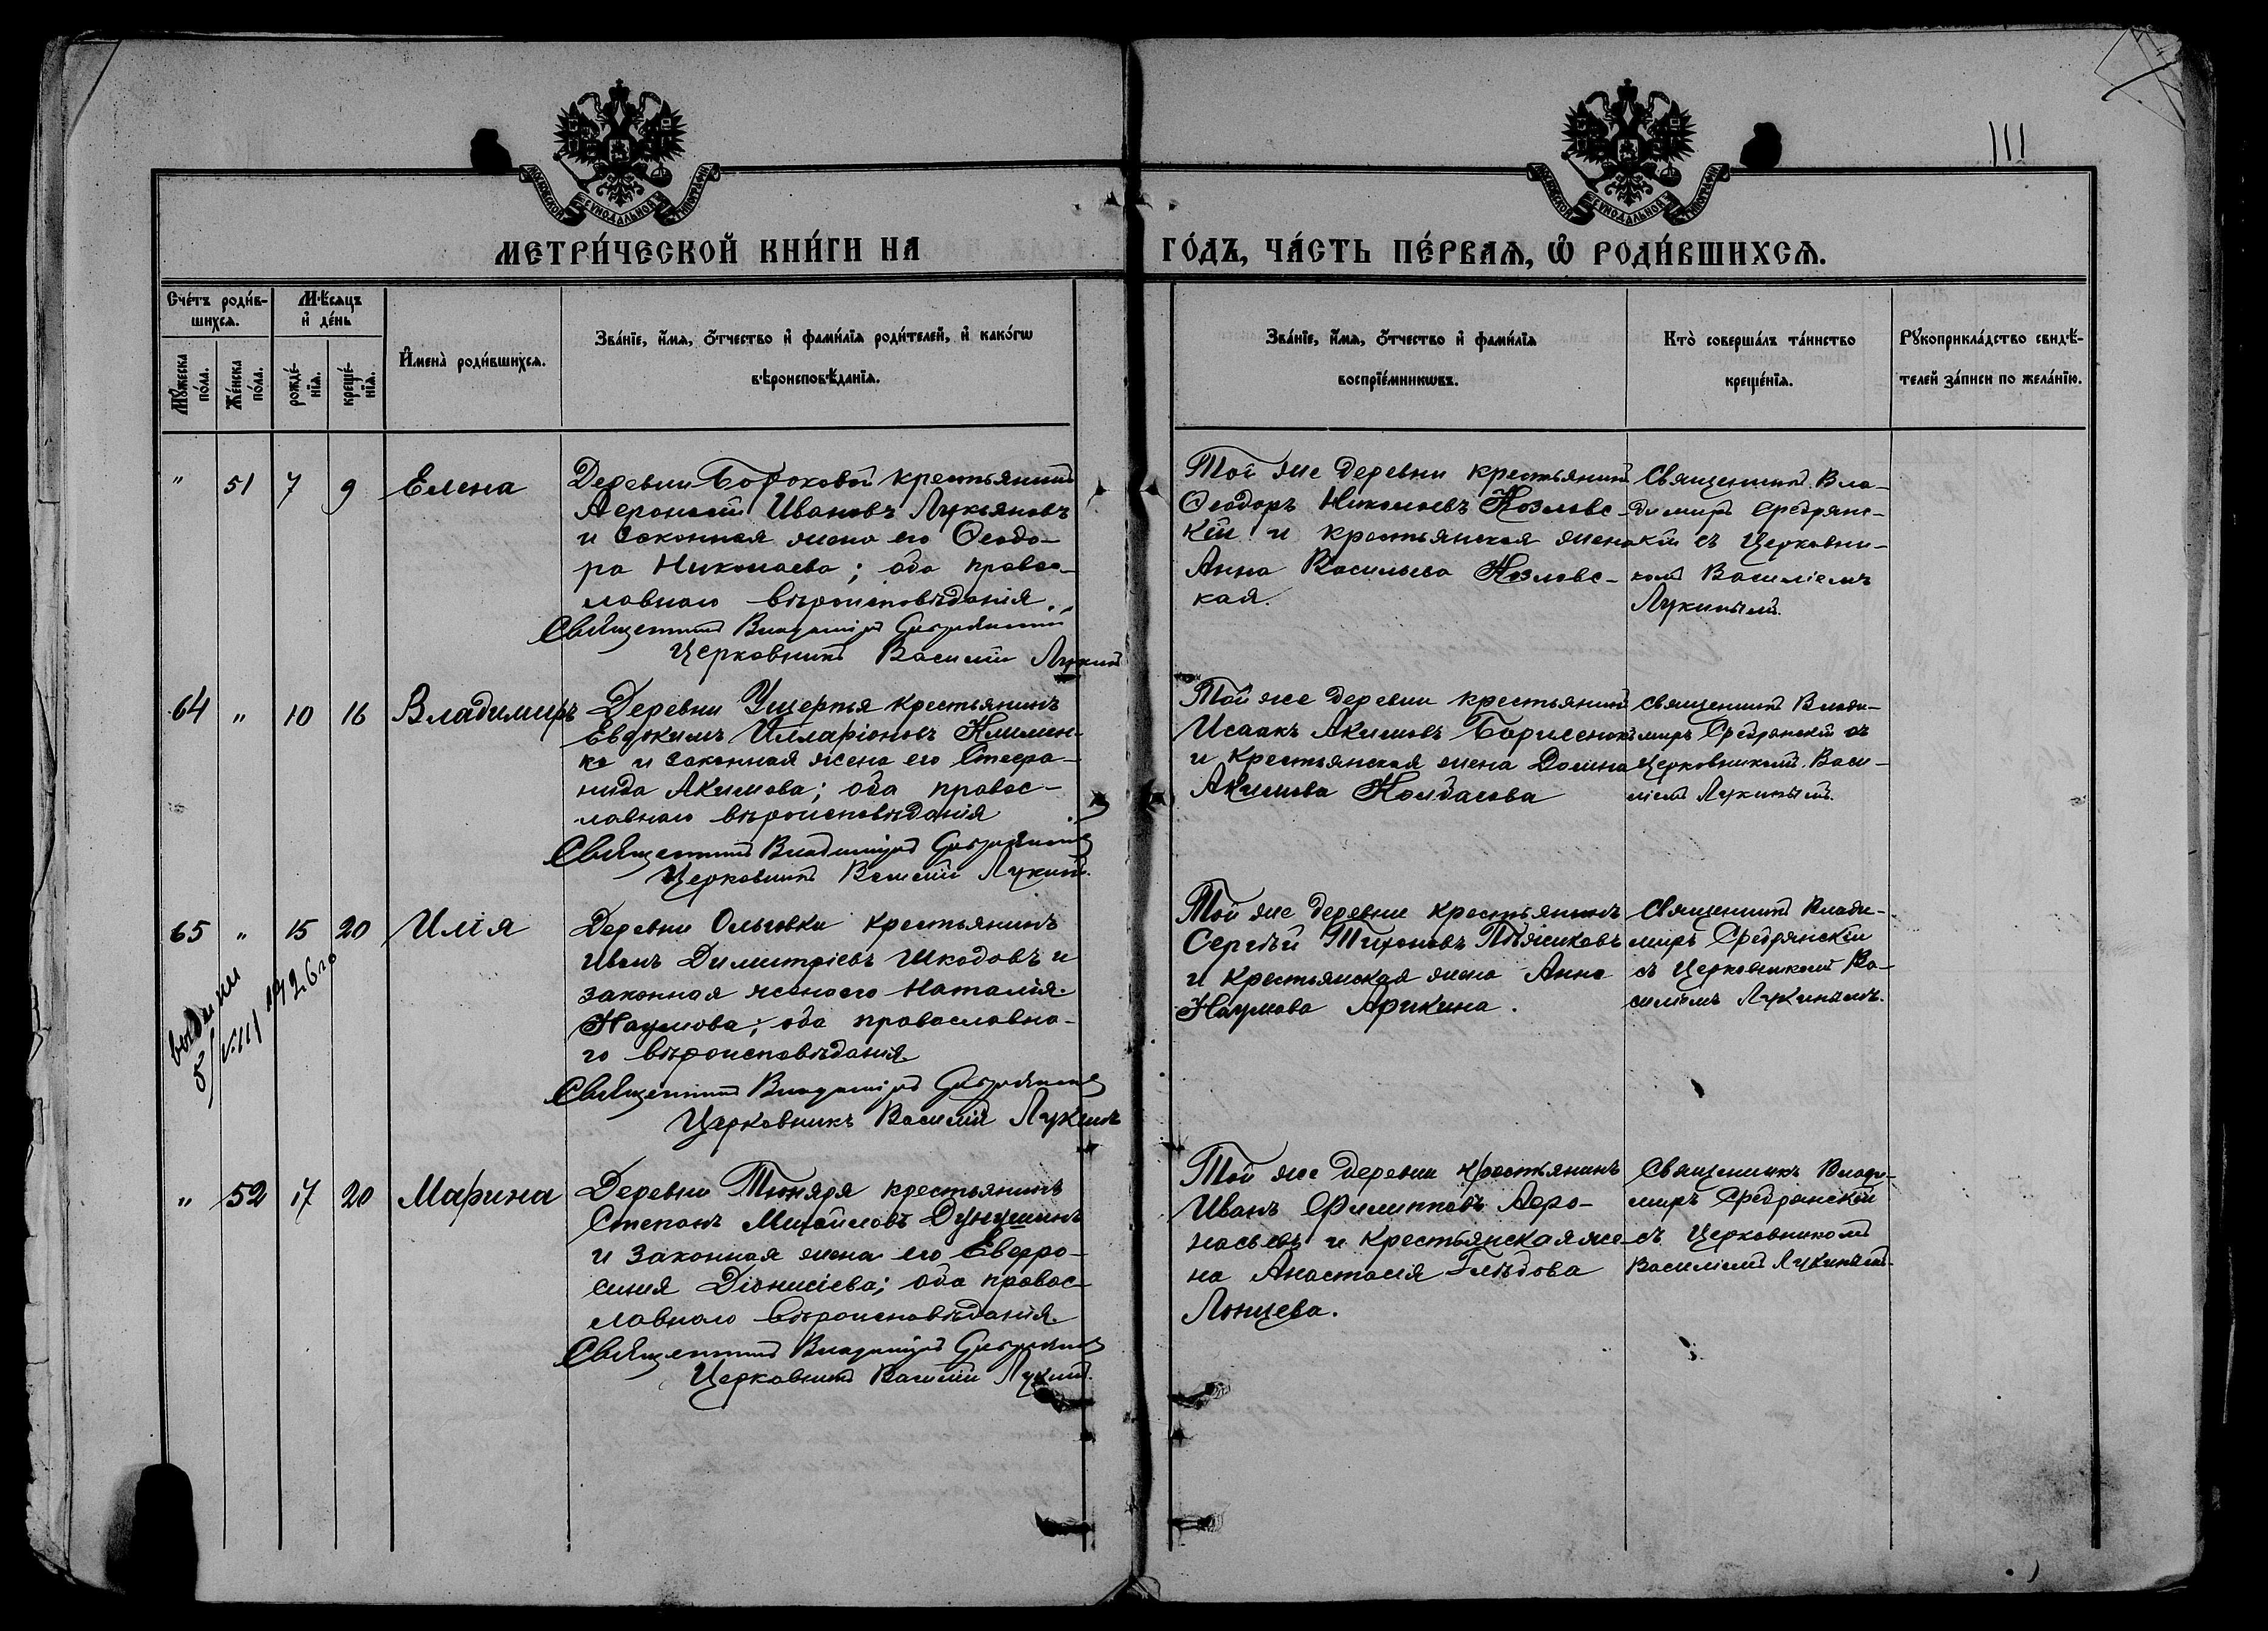 111
МОСКОВСКОЙ СѴНОДАЛЬНОЙ ТИПОГРАФІИ
МОСКОВСКОЙ СѴНОДАЛЬНОЙ ТИПОГРАФІИ
МЕТРИ́ЧЕСКОЙ КНИ́ГИ НА ГО́ДЪ, ЧА́СТЬ ПЕ́РВАѦ, Ѡ҆ РОДИ́ВШИХСѦ.
Сче́тъ роди́в-
шихсѧ.
Мꙋ́жеска по́ла.
Же́нска по́ла.
Мѣ́сѧцъ
и҆ де́нь
рожде́-
нїѧ.
креще́-
нїѧ.
И҆мена̀ роди́вшихсѧ.
Зва́нїе, и҆́мѧ, ѻ҆́тчество и҆ фами́лїѧ роди́телей, и҆ како́гѡ
вѣроисповѣ́данїѧ.
Зва́нїе, и҆́мѧ, ѻ҆́тчество и҆ фами́лїѧ
воспрїе́мникѡвъ.
Кто̀ соверша́лъ та́инство
креще́нїѧ.
Рꙋкоприкла́дство свидѣ́-
телей за́писи по жела́нїю.
" 51 7 9 Елена
Деревни Бороковой крестьянинъ
Иванов Лукьяновъ
и законная жена его Ѳеодо-
ра Николаева; оба правос-
лавнаго вѣроисповѣданія
Священникъ Владиміръ Сребрянскій
Церковникъ Василій Лукинъ
Той же деревни крестьянинъ
Ѳеодоръ Николаевъ Козловс-
кій и крестьянская жена
Анна Васильева Козловс-
кая.
Священникъ Вла-
димиръ Сребрянс-
кій съ Церковни-
комъ Василіемъ
Лукинымъ.
64 " 10 16 Владимиръ
Деревни Ущерпья крестьянинъ
Евдокимъ Илларіоновъ Климен-
ко и законная жена его Стефа-
нида Акимова; оба правос-
лавнаго вѣроисповѣданія
Священникъ Владиміръ Сребрянскій
Церковникъ Василій Лукинъ.
Той же деревни крестьянинъ
Исаакъ Акимовъ Борисенокъ
и крестьянская жена Домна
Акимова Колбасова
Священникъ Влади-
миръ Сребрянскій съ
Церковникомъ Васи-
ліемъ Лукинымъ.
65 " 15 20 Илія
выдан
5/VIII 1926 го
Деревни Ольговки крестьянинъ
Иванъ Димитріевъ Шкодовъ и
законная жена его Наталія
Наумова; оба православна-
го вѣроисповѣданія.
Священникъ Владиміръ Сребрянскій
Церковникъ Василій Лукинъ
Той же деревни крестьянинъ
Сергѣй Тихоновъ
и крестьянская жена Анна
Наумова Арикина.
Священникъ Влади-
миръ Сребрянскій
съ Церковникомъ Ва-
силіемъ Лукинымъ.
" 52 17 20 Марина
Деревни Тюняря крестьянинъ
Степанъ Михайловъ Дунушинъ
и законная жена его Евфро-
синія Діонисіева; оба правос-
лавнаго вѣроисповѣданія.
Священникъ Владиміръ Сребрянскій
Церковникъ Василій Лукинъ.
Той же деревни крестьянинъ
Иванъ Филипповъ Афо-
насьевъ и крестьянская же-
на Анастасія Глѣбова
Лонцева.
Священникъ Влади-
миръ Сребрянскій
съ Церковникомъ
Василіемъ Лукинымъ.